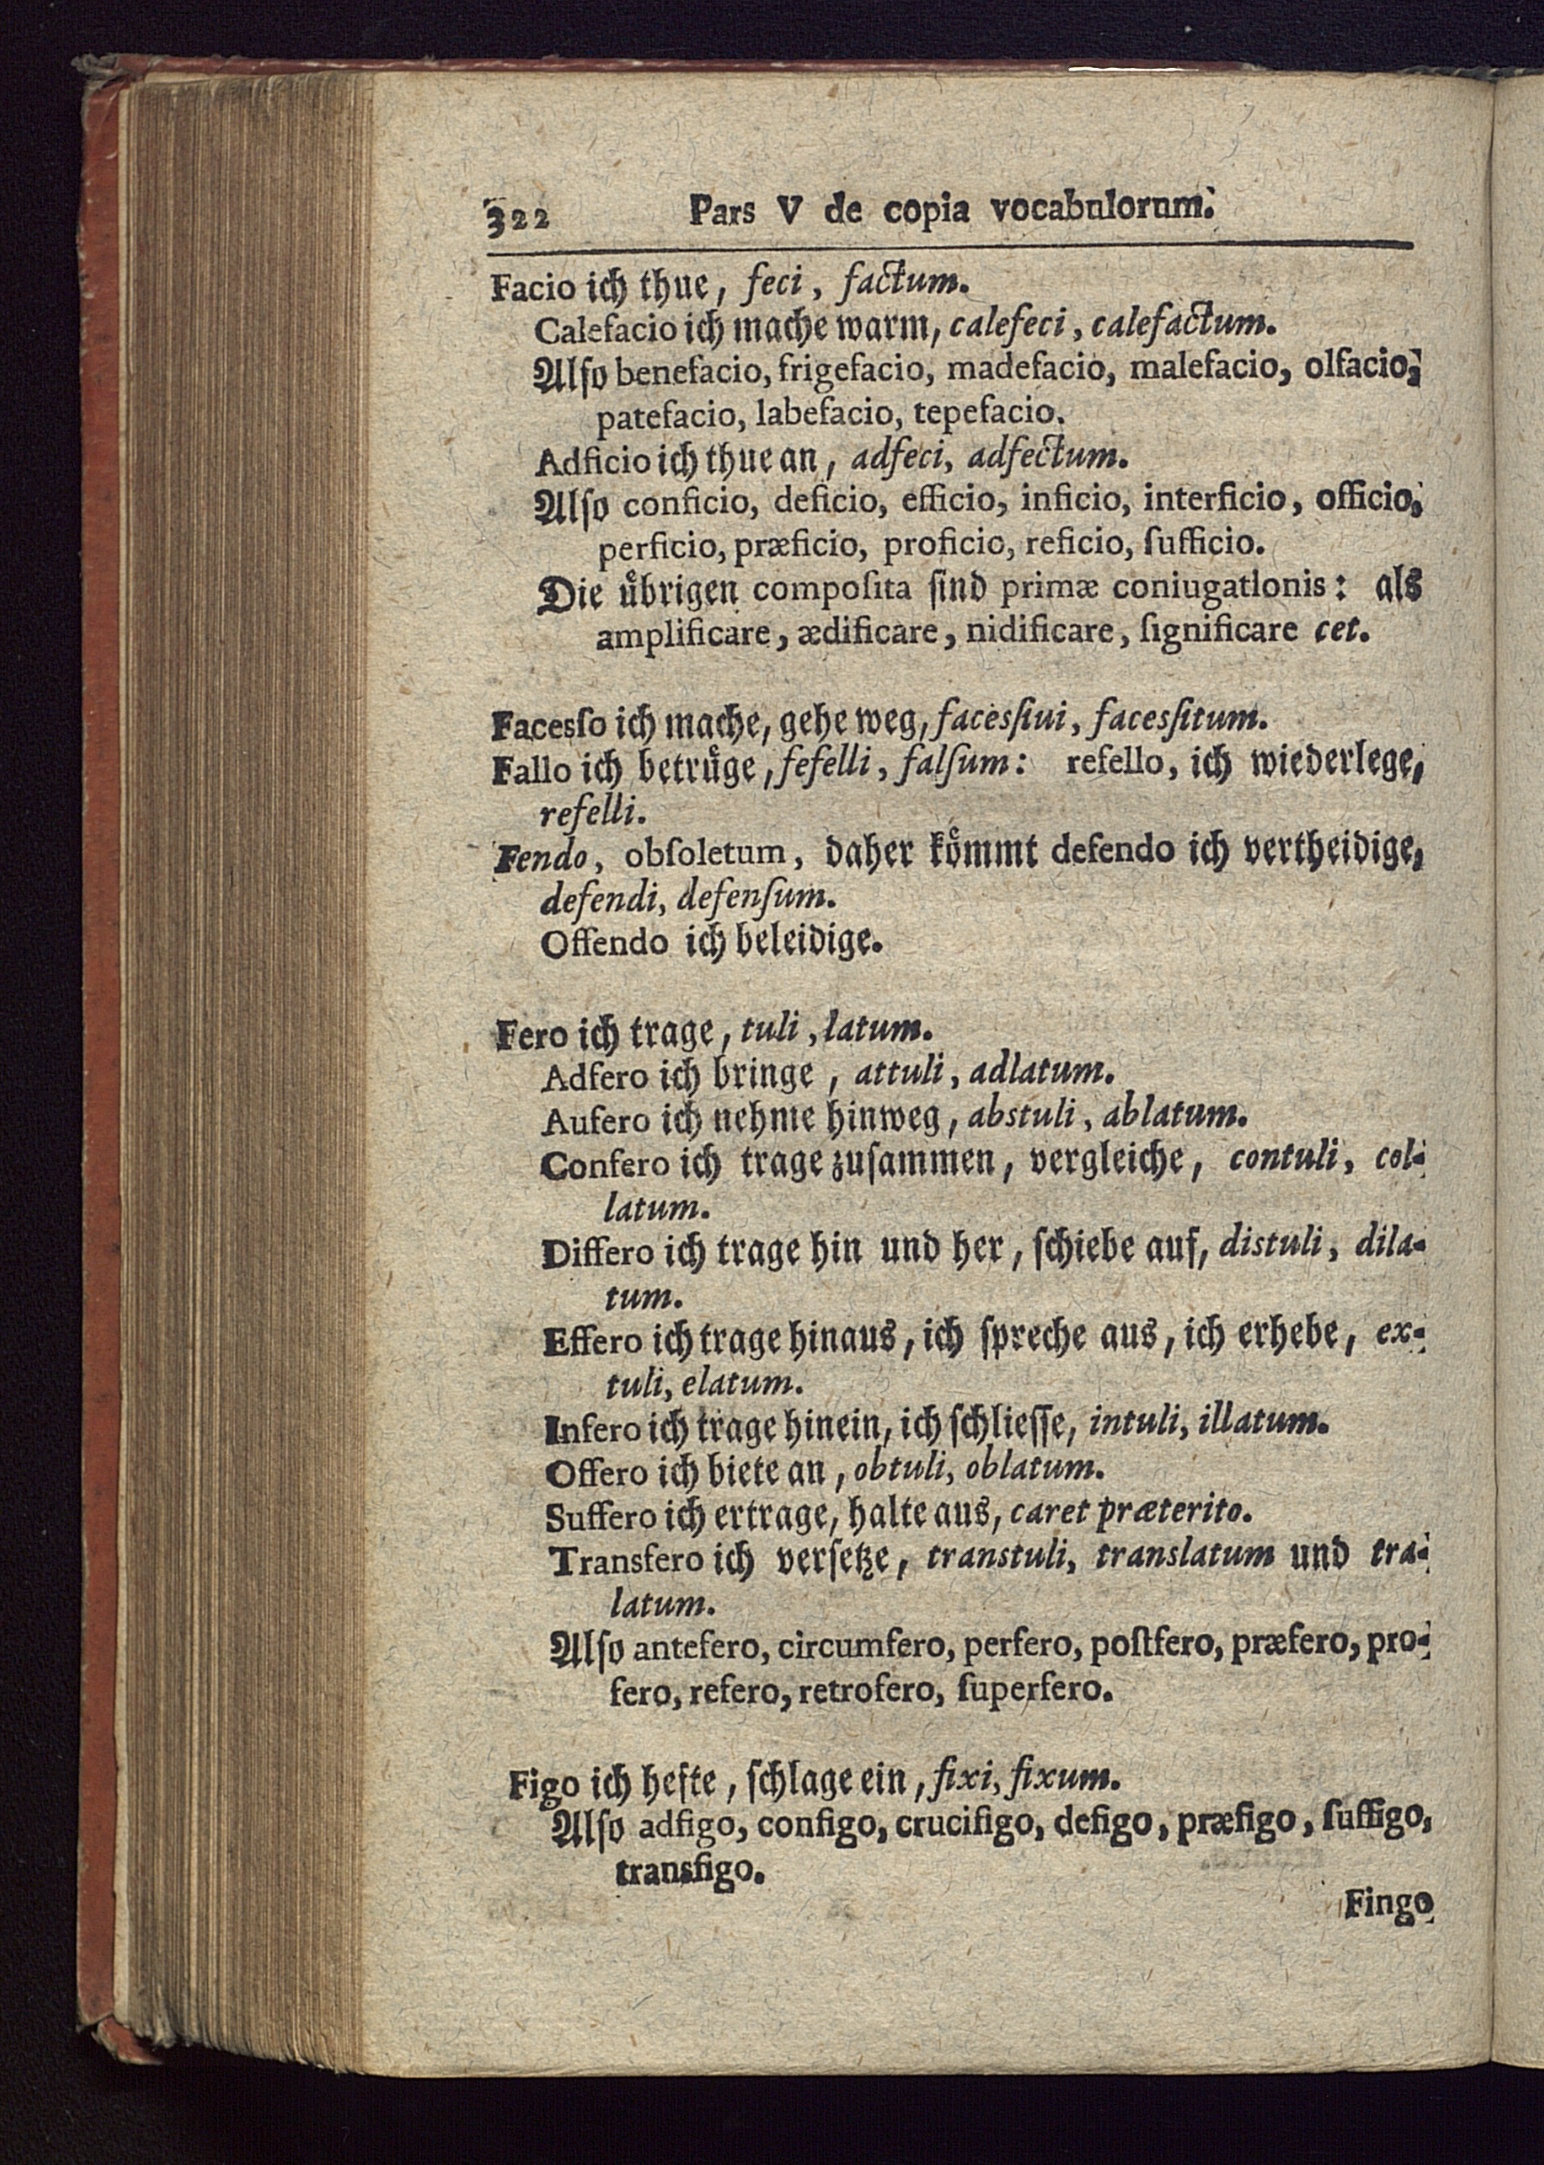 322 Pars V de copia vocabulorum.
Facio ich thue, feci, factum.
Calefacio ich mache warm, calefeci, calefactum.
Alſo benefacio, frigefacio, madefacio, malefacio, olfacio,
patefacio, labefacio, tepefacio.
Adficio ich thue an, adfeci, adfectum.
Alſo conficio, deficio, efficio, inficio, interficio, officio,
perficio, præficio, proficio, reficio, ſufficio.
Die uͤbrigen compoſita ſind primæ coniugationis: als
amplificare, ædificare, nidificare, ſignificare cet.
Facesſo ich mache, gehe weg, facesſiui, facesſitum.
Fallo ich betruͤge, fefelli, falſum: refello, ich wiederlege,
refelli.
Fendo, obſoletum, daher koͤmmt defendo ich vertheidige,
defendi, defenſum.
Offendo ich beleidige.
Fero ich trage, tuli, latum.
Adfero ich bringe, attuli, adlatum.
Aufero ich nehme hinweg, abstuli, ablatum.
Confero ich trage zuſammen, vergleiche, contuli, col-
latum.
Differo ich trage hin und her, ſchiebe auf, distuli, dila-
tum.
Effero ich trage hinaus, ich ſpreche aus, ich erhebe, ex-
tuli, elatum.
Infero ich trage hinein, ich ſchlieſſe, intuli, illatum.
Offero ich biete an, obtuli, oblatum.
Suffero ich ertrage, halte aus, caret præterito.
Transfero ich verſetze, transtuli, translatum und tra-
latum.
Alſo antefero, circumfero, perfero, poſtfero, præfero, pro-
fero, refero, retrofero, ſuperfero.
Figo ich hefte, ſchlage ein, fixi, fixum.
Alſo adfigo, configo, crucifigo, defigo, præfigo, ſuffigo,
transfigo.
Fingo